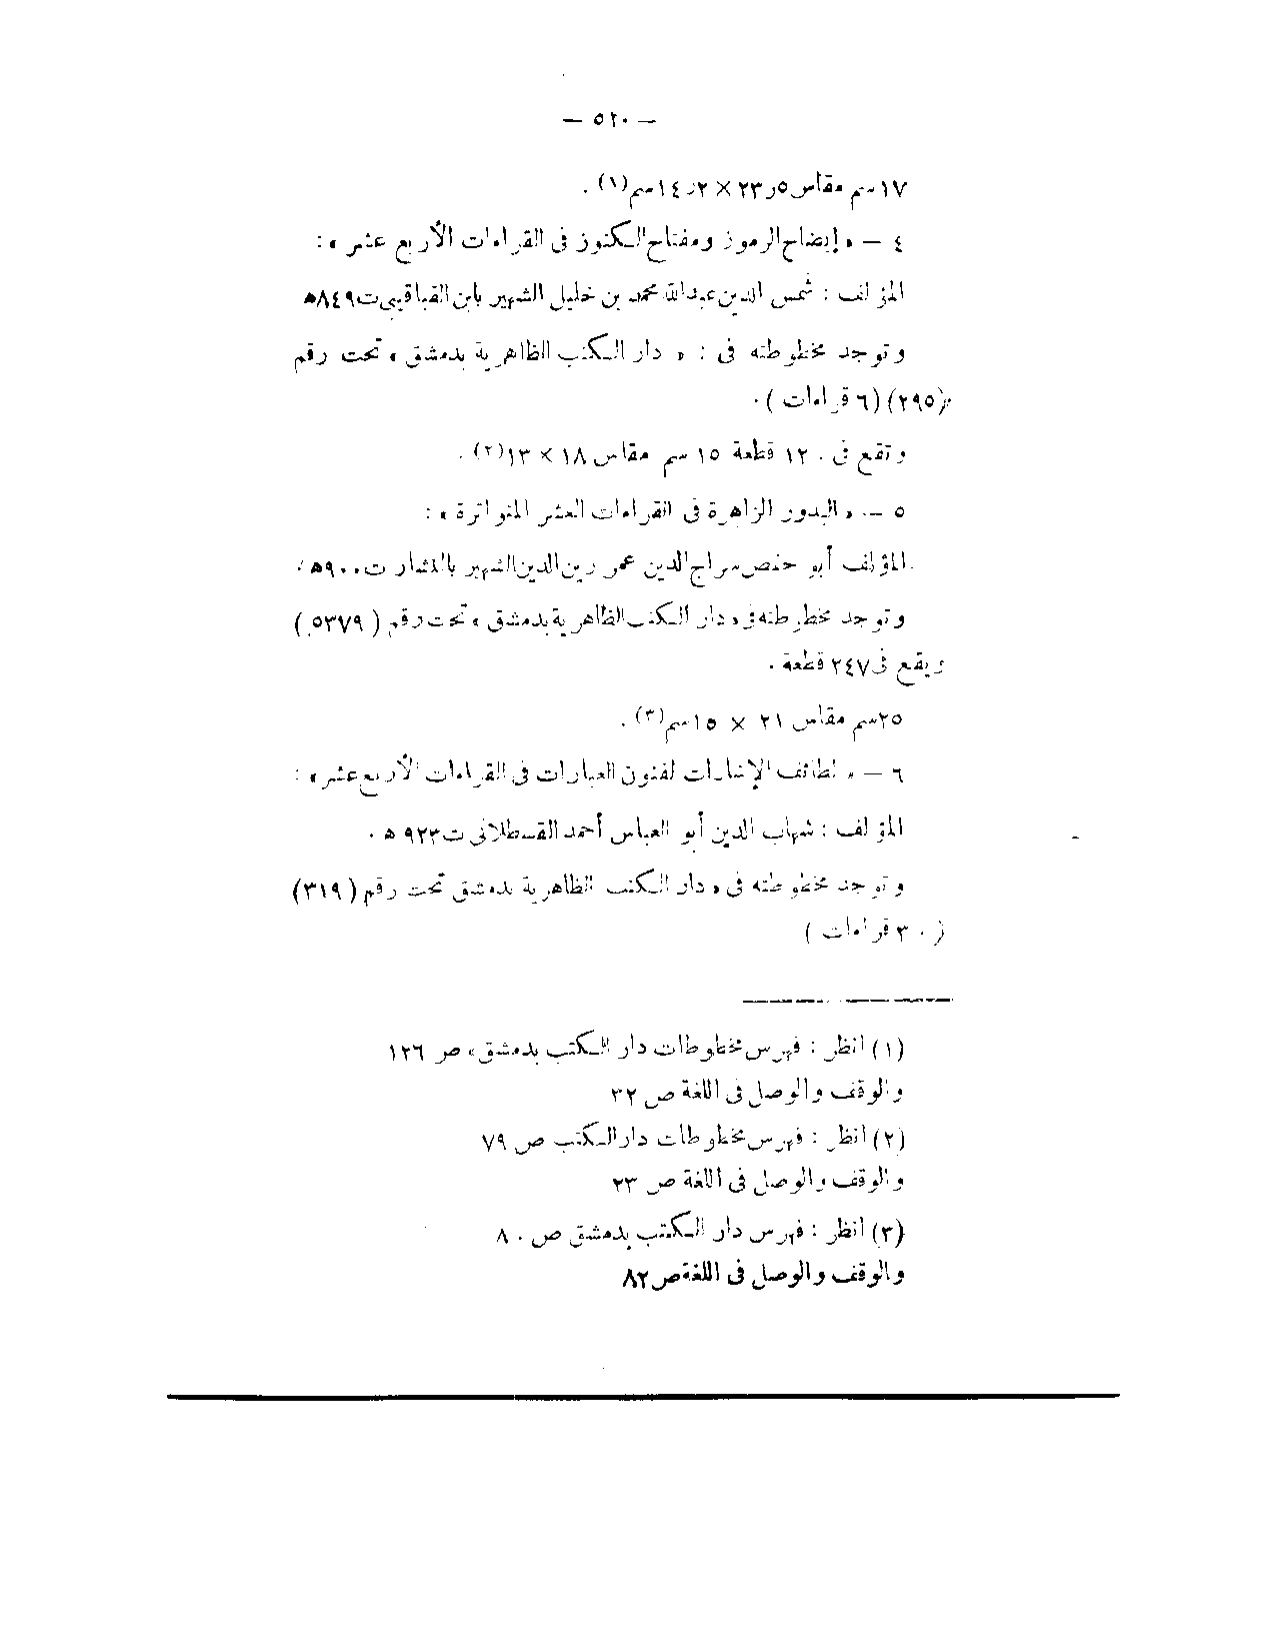 — ٥٢٠ —
١٧سم مقاس ٥ر٢٣ × ٢ر١٤سم(١) .
٤ — « إيضاح الرموز ومفتاح الكنوز فى القراءات الأربع عشر » :
المؤلف : شمس الدين عبدالله محمد بن خليل الشهير بابن القباقيبى ت٨٤٩ه
وتوجد مخطوطته فى : « دار الكتب الظاهرية بدمشق » تحت رقم
(٢٩٥) (٦ قراءات ) .
وتقع فى ١٢٠ قطعة ١٥ سم مقاس ١٨ × ١٣(٢) .
٥ — « البدور الزاهرة فى القراءات العشر المتواترة » :
المؤلف أبو حفص سراج الدين عمر زين الدين الشهير بالنشار ت٩٠٠ه .
وتوجد مخطوطته فى « دار الكتب الظاهرية بدمشق » تحت رقم ( ٥٣٧٩ )
ويقع فى ٢٤٧ قطعة .
٢٥سم مقاس ٢١ × ١٥سم(٣) .
٦ — « لطائف الإشارات لفنون العبارات فى القراءات الأربع عشر » :
المؤلف : شهاب الدين أبو العباس أحمد القسطلانى ت٩٢٣ ه .
وتوجد مخطوطته فى « دار الكتب الظاهرية بدمشق تحت رقم ( ٣١٩)
( ٣٠ قراءات )
(١) انظر : فهرس مخطوطات دار الكتب بدمشق » ص ١٢٦
والوقف والوصل فى اللغة ص ٣٢
(٢) انظر : فهرس مخطوطات دار الكتب ص ٧٩
والوقف والوصل فى اللغة ص ٢٣
(٣) انظر : فهرس دار الكتب بدمشق ص ٨٠
والوقف والوصل فى اللغة ص ٨٢